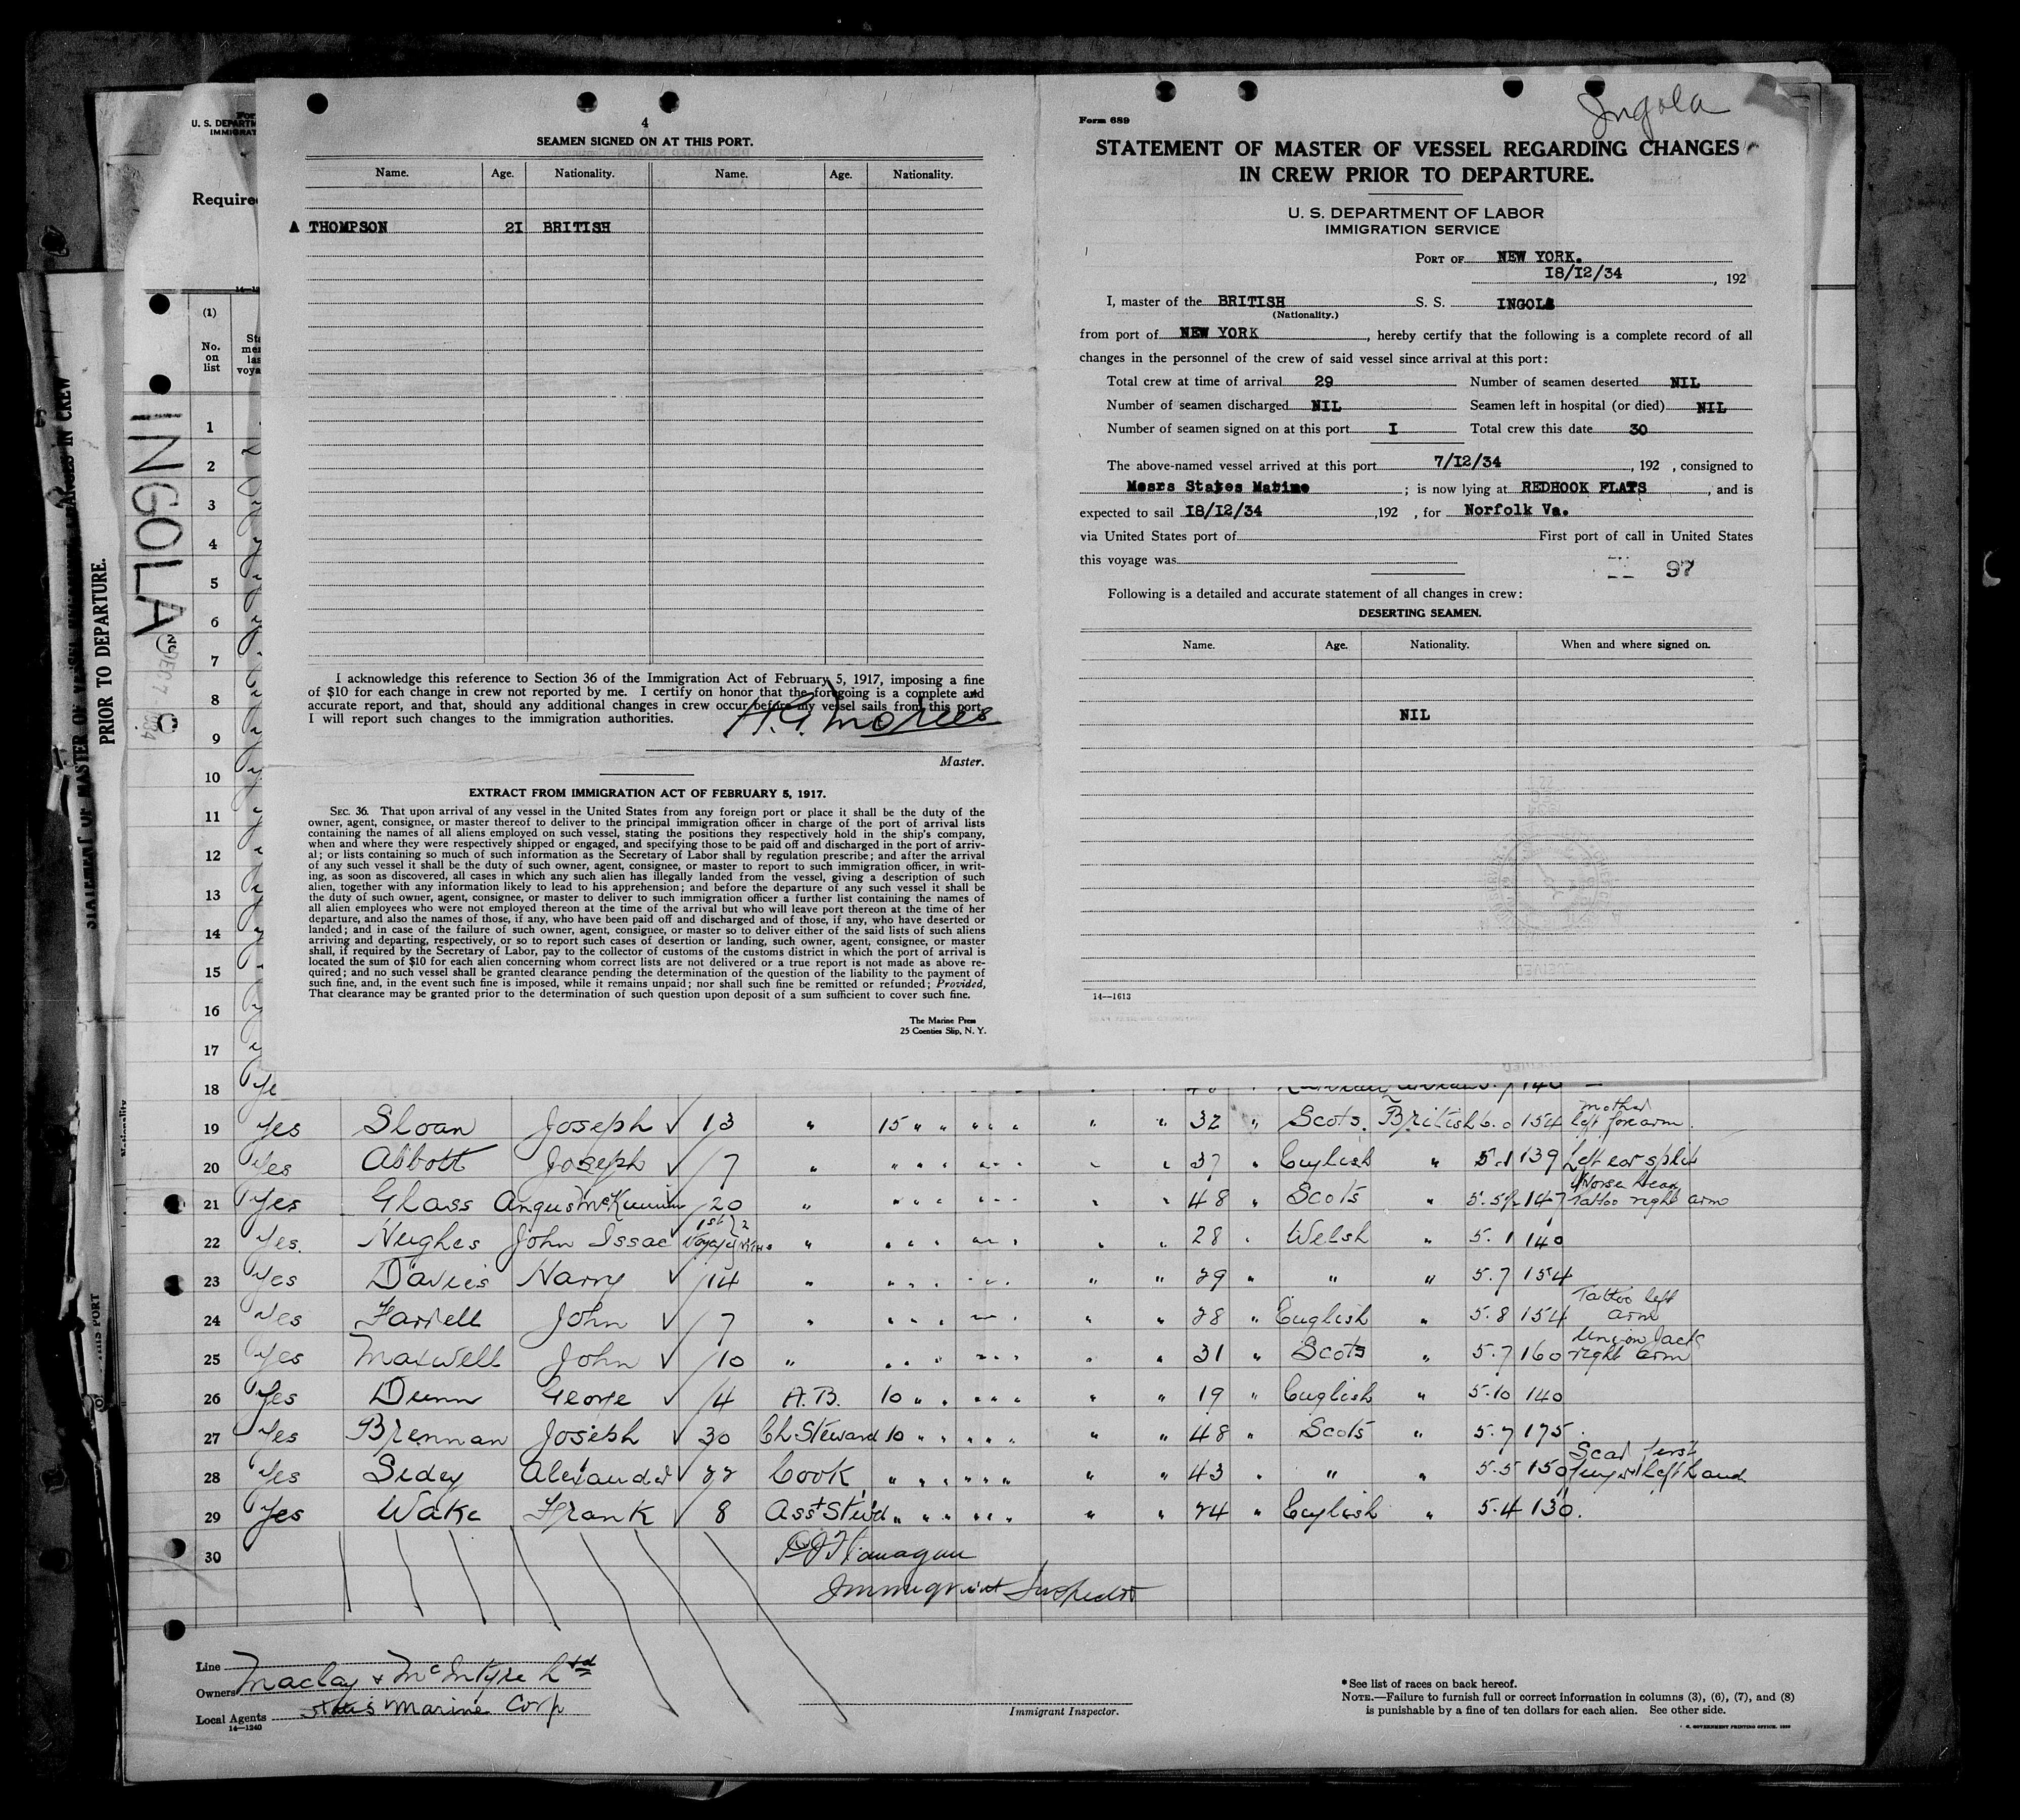 4
SEAMEN SIGNED ON AT THIS PORT.
Name. Age. Nationality. Name. Age. Nationality.
A THOMPSON 21 BRITISH
I acknowledge this reference to Section 36 of the Immigration Act of February 5, 1917, imposing a fine
of $10 for each change in crew not reported by me. I certify on honor that the foregoing is a complete and
accurate report, and that, should any additional changes in crew occur before my vessel sails from this port,
I will report such changes to the immigration authorities.
Master.
EXTRACT FROM IMMIGRATION ACT OF FEBRUARY 5, 1917.
SEC. 36. That upon arrival of any vessel in the United States from any foreign port or place it shall be the duty of the
owner, agent, consignee, or master thereof to deliver to the principal immigration officer in charge of the port of arrival lists
containing the names of all aliens employed on such vessel, stating the positions they respectively hold in the ship's company,
when and where they were respectively shipped or engaged, and specifying those to be paid off and discharged in the port of arriv-
al; or lists containing so much of such information as the Secretary of Labor shall by regulation prescribe; and after the arrival
of any such vessel it shall be the duty of such owner, agent, consignee, or master to report to such immigration officer, in writ-
ing, as soon as discovered, all cases in which any such alien has illegally landed from the vessel, giving a description of such
alien, together with any information likely to lead to his apprehension; and before the departure of any such vessel it shall be
the duty of such owner, agent, consignee, or master to deliver to such immigration officer a further list containing the names of
all alien employees who were not employed thereon at the time of the arrival but who will leave port thereon at the time of her
departure, and also the names of those, if any, who have been paid off and discharged and of those, if any, who have deserted or
landed; and in case of the failure of such owner, agent, consignee, or master so to deliver either of the said lists of such aliens
arriving and departing, respectively, or so to report such cases of desertion or landing, such owner, agent, consignee, or master
shall, if required by the Secretary of Labor, pay to the collector of customs of the customs district in which the port of arrival is
located the sum of $10 for each alien concerning whom correct lists are not delivered or a true report is not made as above re-
quired; and no such vessel shall be granted clearance pending the determination of the question of the liability to the payment of
such fine, and, in the event such fine is imposed, while it remains unpaid; nor shall such fine be remitted or refunded; Provided,
That clearance may be granted prior to the determination of such question upon deposit of a sum sufficient to cover such fine.
The Marine Press
25 Coenties Slip, N. Y.
Ingola
Form 689
STATEMENT OF MASTER OF VESSEL REGARDING CHANGES
IN CREW PRIOR TO DEPARTURE.
U. S. DEPARTMENT OF LABOR
IMMIGRATION SERVICE
PORT OF NEW YORK.
18/12/34, 192
I, master of the BRITISH S. S. INGOLA
(Nationality.)
from port of NEW YORK, hereby certify that the following is a complete record of all
changes in the personnel of the crew of said vessel since arrival at this port:
Total crew at time of arrival 29 Number of seamen deserted NIL
Number of seamen discharged NIL Seamen left in hospital (or died) NIL
Number of seamen signed on at this port I Total crew this date 30
The above-named vessel arrived at this port 7/12/34, 192 , consigned to
Messrs States Marine; is now lying at REDHOOK FLATS, and is
expected to sail 18/12/34, 192 , for Norfolk Va.
via United States port of First port of call in United States
this voyage was
97
Following is a detailed and accurate statement of all changes in crew:
DESERTING SEAMEN.
Name. Age. Nationality. When and where signed on.
NIL
14—1613
U. S. DEPARTM
IMMIGRAT
Require
(1)
No.
on
list
INGOLA
DEC 7 1934
STATEMENT OF MASTER OF
PRIOR TO DEPARTURE.
1
2
3
4
5
6
7
8
9
10
11
12
13
14
15
16
17
18 Ye
19 Yes Sloan Joseph ✓ 13 " 15 " " " " " " " 32 " Scots. British 6.0 154 mother left forearm.
20 Yes Abbott Joseph ✓ 7 " " " " " " " " 37 " English " 5.1 139 Left ear split
21 Yes Glass Angus 20 " " " " " " " " 48 " Scots " 5.5½ 147 Horse head Tattoo right arm
22 Yes. Hughes John Issac 1st Voyage " " " " " " " " 28 " Welsh " 5.1 140
23 Yes Davies Harry ✓ 14 " " " " " " " " 29 " " " 5.7 154
24 Yes Farrell John ✓ 7 " " " " " " " " 28 " English " 5.8 154 Tattoo left arm
25 Yes Maxwell John ✓ 10 " " " " " " " " 31 " Scots " 5.7 160 Union Jack right arm
26 Yes Dunn George ✓ 4 A.B. 10 " " " " " " " 19 " English " 5.10 140
27 Yes Brennan Joseph ✓ 30 Ch Steward 10 " " " " " " " 48 " Scots " 5.7 175.
28 Yes Sidey Alexander ✓ 22 Cook " " " " " " " 43 " " " 5.5 150 Scar first finger left hand
29 Yes Wake Frank ✓ 8 Asst Stew'd " " " " " " " 24 " English " 5.4 130.
30
Flanagan
Immigrant Inspector
Line
Owners Maclay & McIntyre Ltd
Local Agents States Marine Corp
14—1240
Immigrant Inspector.
* See list of races on back hereof.
NOTE.—Failure to furnish full or correct information in columns (3), (6), (7), and (8)
is punishable by a fine of ten dollars for each alien. See other side.